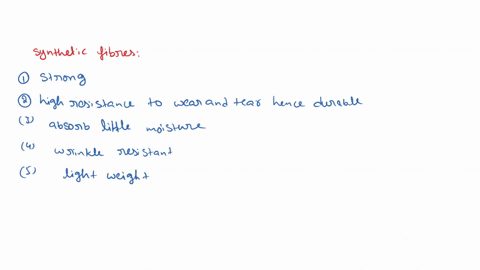 synthetic fibres:
① Strong
② high resistance to wear and tear hence durable
(3) absorb little moisture
(4) wrinkle resistant
(5) light weight